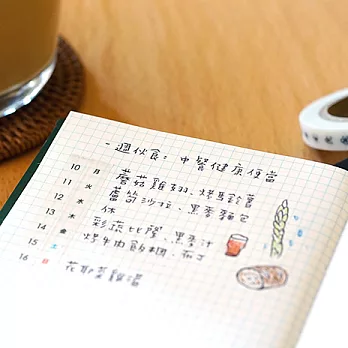 -週伙食: 中餐健康便當
10 月 蘑菇雞翅、烤馬鈴薯
11 火 蘆筍沙拉、黑麥麵包
12 水 休
13 木 彩蔬比薩、黑麥汁
14 金 烤牛肉飯糰、布丁
15 土
16 日 花椰菜雞湯